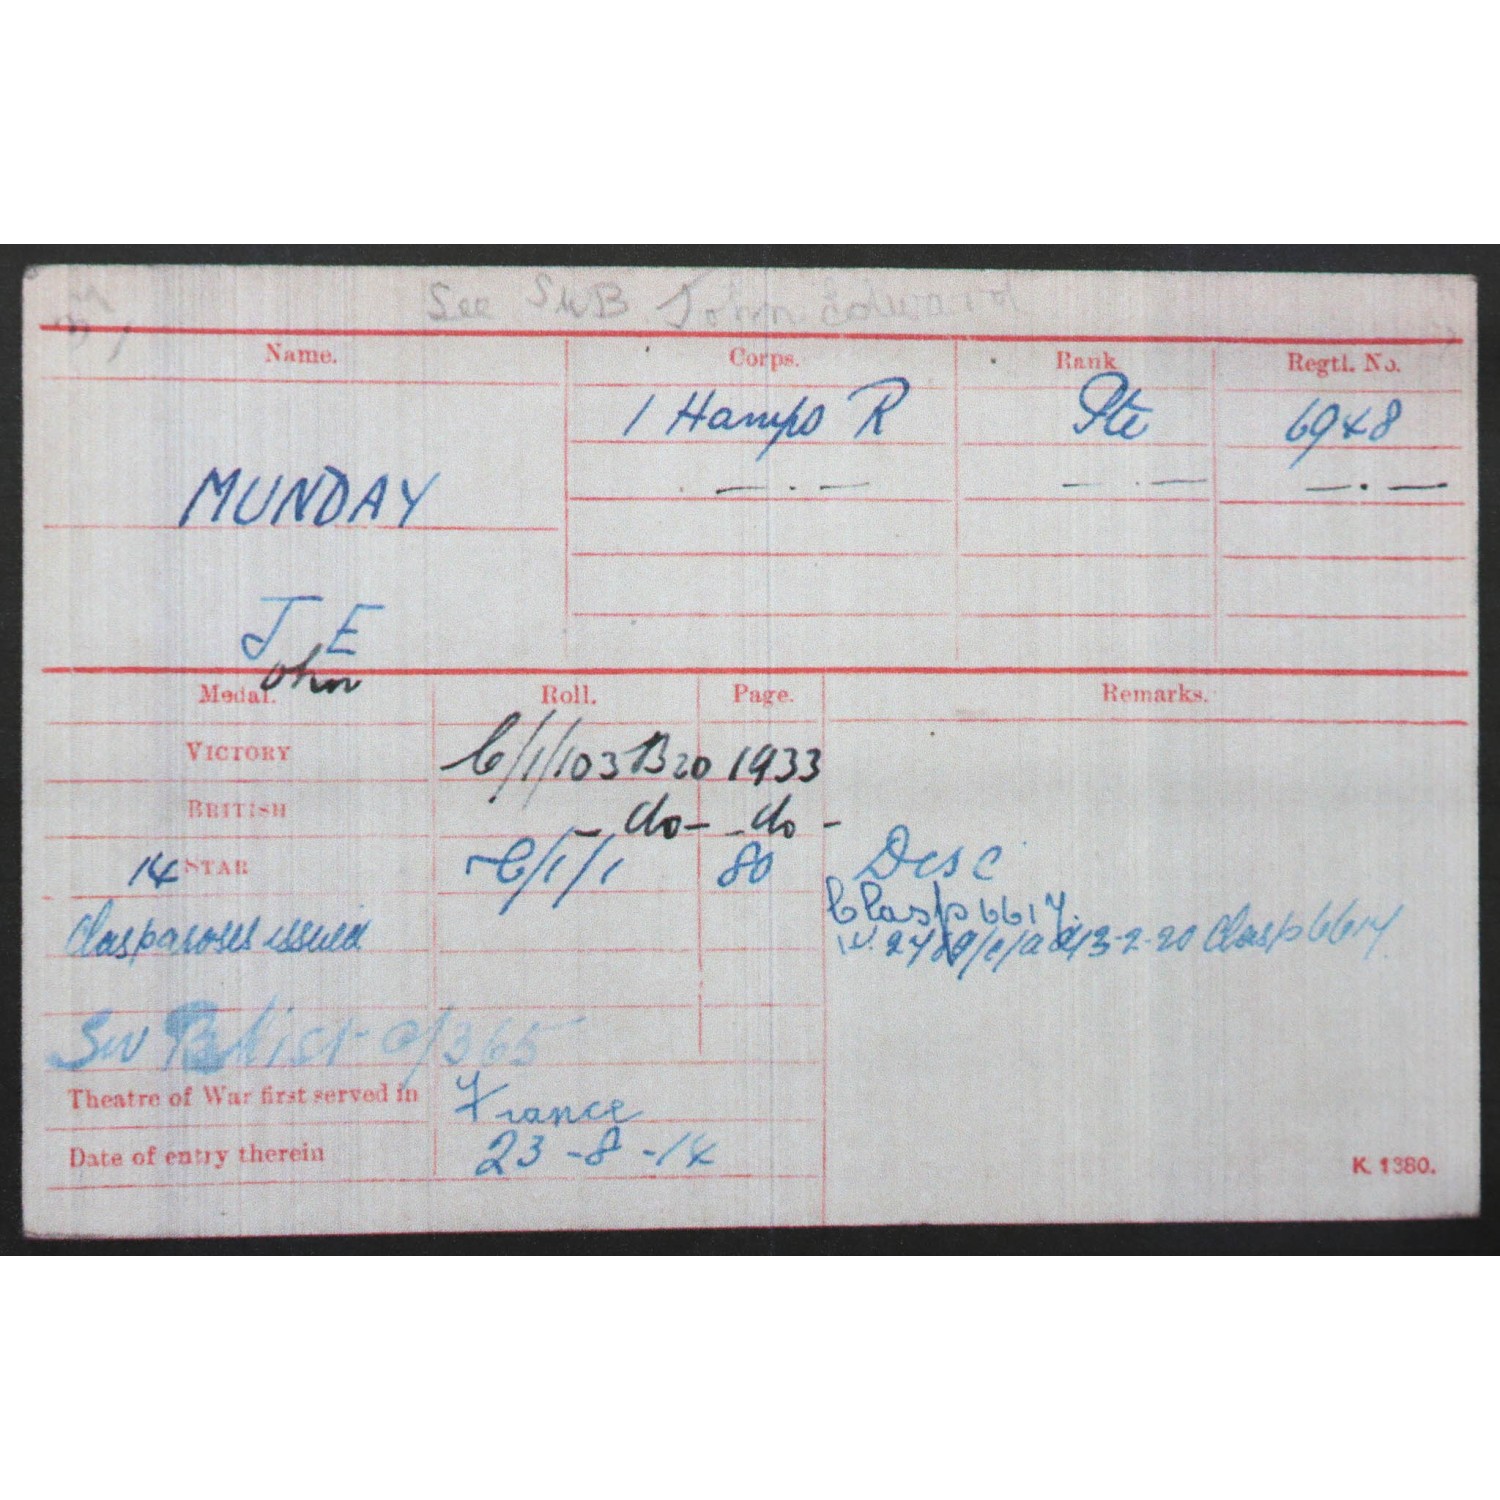 See SWB John Edward
Name. Corps. Rank Regtl. No.
1 Hamps R Pte 6948
MUNDAY — . — — . — — . —
J E
ohn
Medal. Roll. Page. Remarks.
VICTORY C/1/103 B20 1933
BRITISH - do - - do -
14 STAR C/1/1 80 Disc
Clasp 6617
Clasp & roses issued I.V. 2429/e/a d/13-2-20 Clasp 6617
SW B List C/365
Theatre of War first served in France
Date of entry therein 23-8-14
K. 1380.